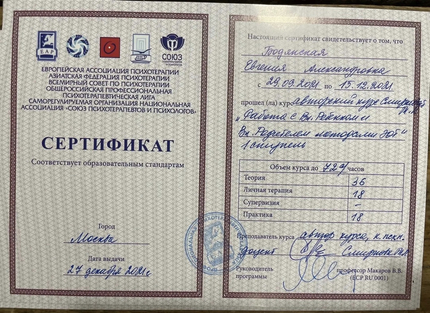 ЕАР
СОЮЗ
ЕВРОПЕЙСКАЯ АССОЦИАЦИЯ ПСИХОТЕРАПИИ
АЗИАТСКАЯ ФЕДЕРАЦИЯ ПСИХОТЕРАПИИ
ВСЕМИРНЫЙ СОВЕТ ПО ПСИХОТЕРАПИИ
ОБЩЕРОССИЙСКАЯ ПРОФЕССИОНАЛЬНАЯ
ПСИХОТЕРАПЕВТИЧЕСКАЯ ЛИГА
САМОРЕГУЛИРУЕМАЯ ОРГАНИЗАЦИЯ НАЦИОНАЛЬНАЯ
АССОЦИАЦИЯ «СОЮЗ ПСИХОТЕРАПЕВТОВ И ПСИХОЛОГОВ»
СЕРТИФИКАТ
Соответствует образовательным стандартам
Город
Москва
Дата выдачи
27 декабря 2021г
Настоящий сертификат свидетельствует о том, что
Бодянская
Евгения Александровна
с 29.09.2021 по 15.12.2021
прошел (ла) курс авторский курс Смирновой
"Работа с Вн. Ребенком и
Вн. Родителем методами
1 ступень
Объем курса до 72ч часов
Теория 36
Личная терапия 18
Супервизия -
Практика 18
Преподаватель курса автор курса, к.псхн.
доцент Смирнова
Руководитель
программы
профессор Макаров В.В.
(ECP RU 0001)